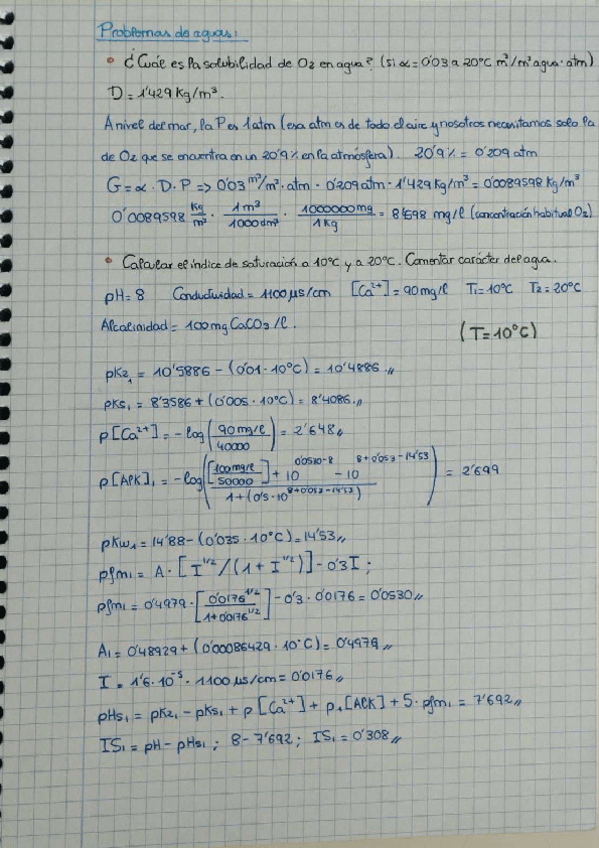 Problemas de aguas:
• ¿Cuál es la solubilidad de O₂ en agua? (si α = 0'03 a 20°C m³/m³agua·atm)
D = 1'429 Kg/m³.
A nivel del mar, la P es 1 atm (esa atm es de todo el aire y nosotros necesitamos solo la
de O₂ que se encuentra en un 20'9% en la atmósfera). 20'9% = 0'209 atm
G = α · D · P => 0'03 m³/m³·atm · 0'209 atm · 1'429 Kg/m³ = 0'0089598 Kg/m³
0'0089598 Kg/m³ · 1m³/1000dm³ · 1000000mg/1Kg = 8'9598 mg/l (concentración habitual O₂)
• Calcular el índice de saturación a 10°C y a 20°C. Comentar carácter del agua.
pH = 8 Conductividad = 1100 μs/cm [Ca²⁺] = 90 mg/l T₁ = 10°C T₂ = 20°C
Alcalinidad = 100 mg CaCO₃/l.
(T = 10°C)
pK₂₁ = 10'5886 - (0'01 · 10°C) = 10'4886 //
pKs₁ = 8'3586 + (0'005 · 10°C) = 8'4086 //
p[Ca²⁺] = -log(90 mg/l / 40000) = 2'648 //
p[Alk]₁ = -log(([100 mg/l / 50000] + 10^(0'0530-8) - 10^(8+0'053-14'53)) / (1 + (0'5 · 10^(8+0'053-14'53)))) = 2'699
pKw₁ = 14'88 - (0'035 · 10°C) = 14'53 //
pfm₁ = A · [I^1/2 / (1 + I^1/2)] - 0'3 I ;
pfm₁ = 0'4979 · [0'0176^1/2 / 1 + 0'0176^1/2] - 0'3 · 0'0176 = 0'0530 //
A₁ = 0'48929 + (0'00086429 · 10°C) = 0'4979 //
I = 1'6 · 10⁻⁵ · 1100 μs/cm = 0'0176 //
pHs₁ = pK₂₁ - pKs₁ + p[Ca²⁺] + p₁[Alk] + 5 · pfm₁ = 7'692 //
IS₁ = pH - pHs₁ ; 8 - 7'692 ; IS₁ = 0'308 //